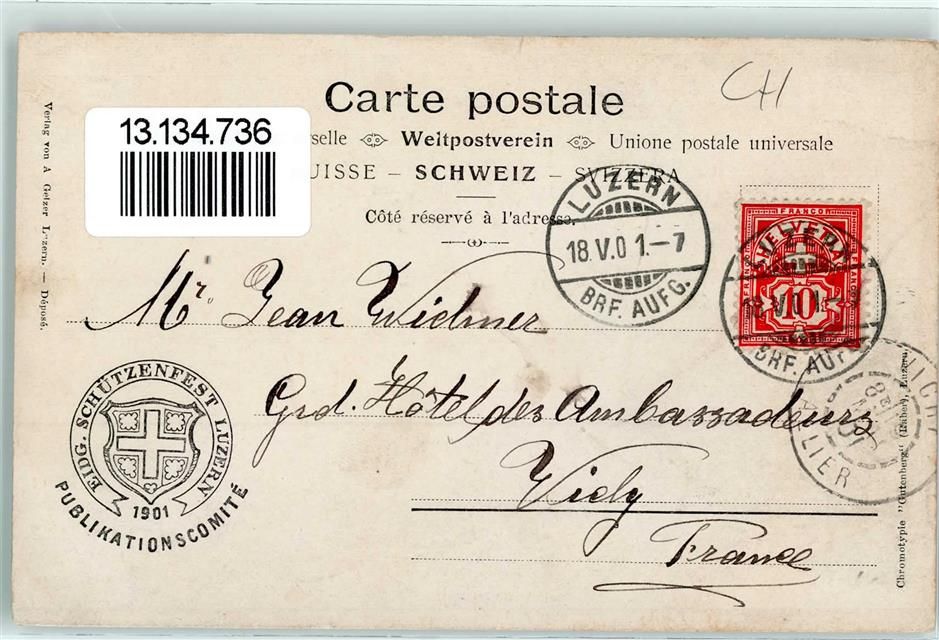 CH
Carte postale
13.134.736
rselle Weltpostverein Unione postale universale
UISSE – SCHWEIZ – SVIZZERA
Côté réservé à l'adresse.
LUZERN
18.V.01.–7
BRF. AUFG.
FRANCO
HELVETIA
10
LUZERN
18.V.01.–
BRF. AUFG.
Mr. Jean Widmer
Grd. Hôtel des Ambassadeurs
Vichy
France
VICHY
ALLIER
EIDG. SCHÜTZENFEST LUZERN
1901
PUBLIKATIONSCOMITÉ
Verlag von A Gelzer Luzern. — Déposé.
Chromotypie "Gutenberg" (Räber), Luzern.